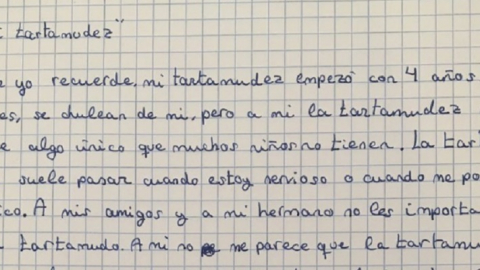 tartamudez"
yo recuerde, mi tartamudez empezó con 4 años
se chulean de mi, pero a mi la tartamudez
algo único que muchos niños no tienen. La tar
suele pasar cuando estoy nervioso o cuando me po
ico. A mis amigos y a mi hermano no les importa
tartamudo. A mi no me parece que la tartamu